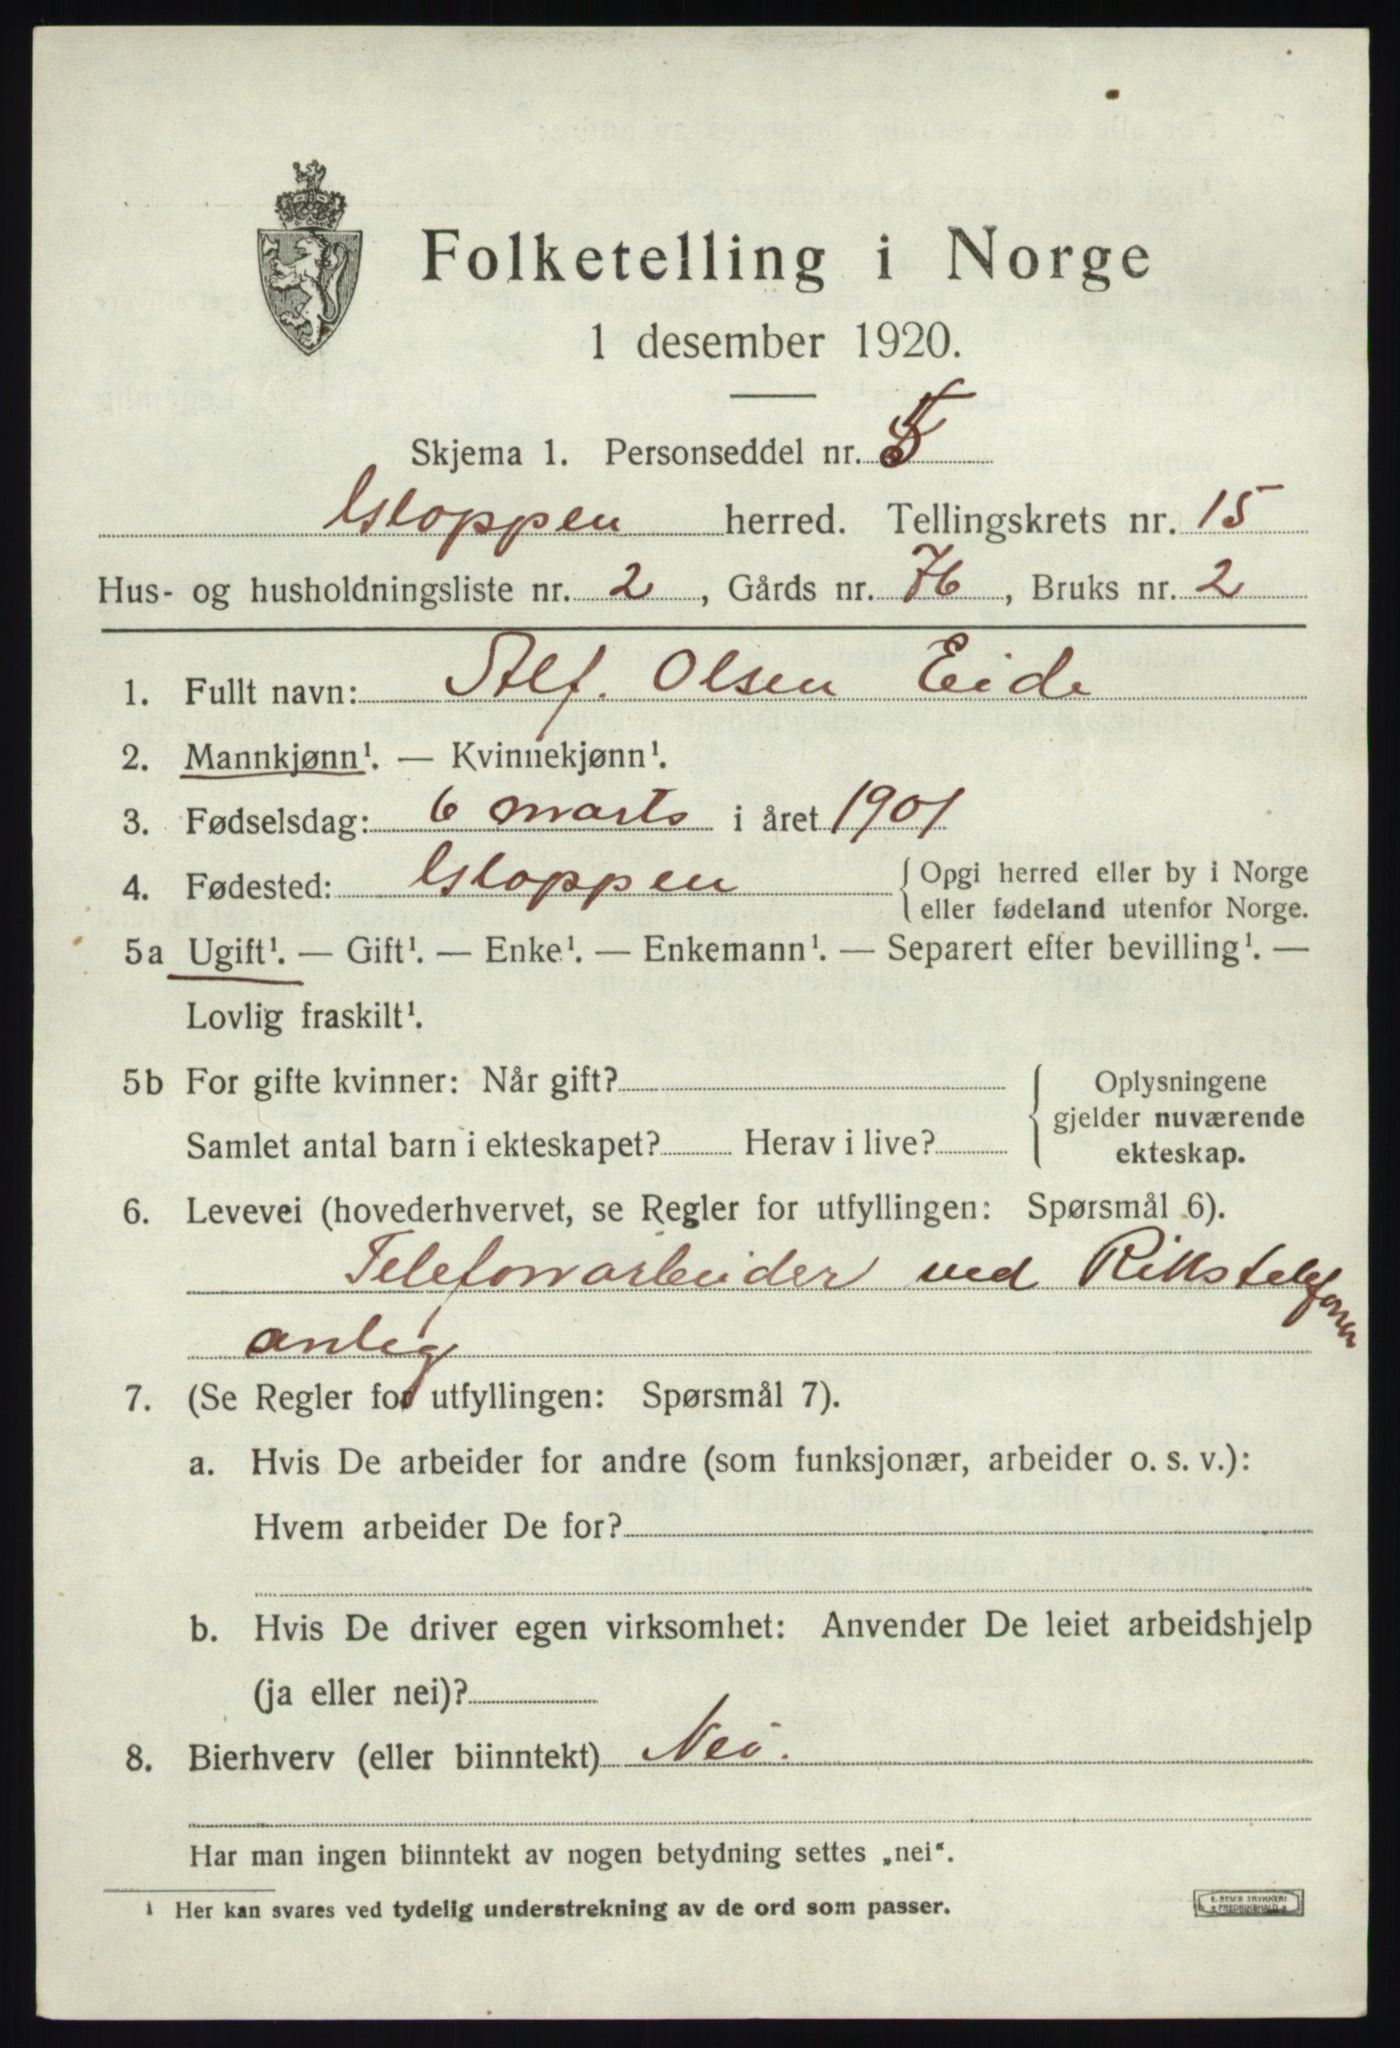 Folketelling i Norge
1 desember 1920.
Skjema 1. Personseddel nr. 5
Gloppen herred. Tellingskrets nr. 15
Hus- og husholdningsliste nr. 2, Gårds nr. 76, Bruks nr. 2
1. Fullt navn: Alf. Olsen Eide
2. Mannkjønn¹. — Kvinnekjønn¹.
3. Fødselsdag: 6 marts i året 1901
4. Fødested: Gloppen { Opgi herred eller by i Norge
eller fødeland utenfor Norge.
5a Ugift¹. — Gift¹. — Enke¹. — Enkemann¹. — Separert efter bevilling¹. —
Lovlig fraskilt¹.
5b For gifte kvinner: Når gift? { Oplysningene
gjelder nuværende
Samlet antal barn i ekteskapet? Herav i live? ekteskap.
6. Levevei (hovederhvervet, se Regler for utfyllingen: Spørsmål 6).
Telefonarbeider ved Rikstelefonen
anleg
7. (Se Regler for utfyllingen: Spørsmål 7).
a. Hvis De arbeider for andre (som funksjonær, arbeider o. s. v.):
Hvem arbeider De for?
b. Hvis De driver egen virksomhet: Anvender De leiet arbeidshjelp
(ja eller nei)?
8. Bierhverv (eller biinntekt) Nei.
Har man ingen biinntekt av nogen betydning settes „nei“.
¹ Her kan svares ved tydelig understrekning av de ord som passer.
E. SEM'S TRYKKERI
FREDRIKSHALD